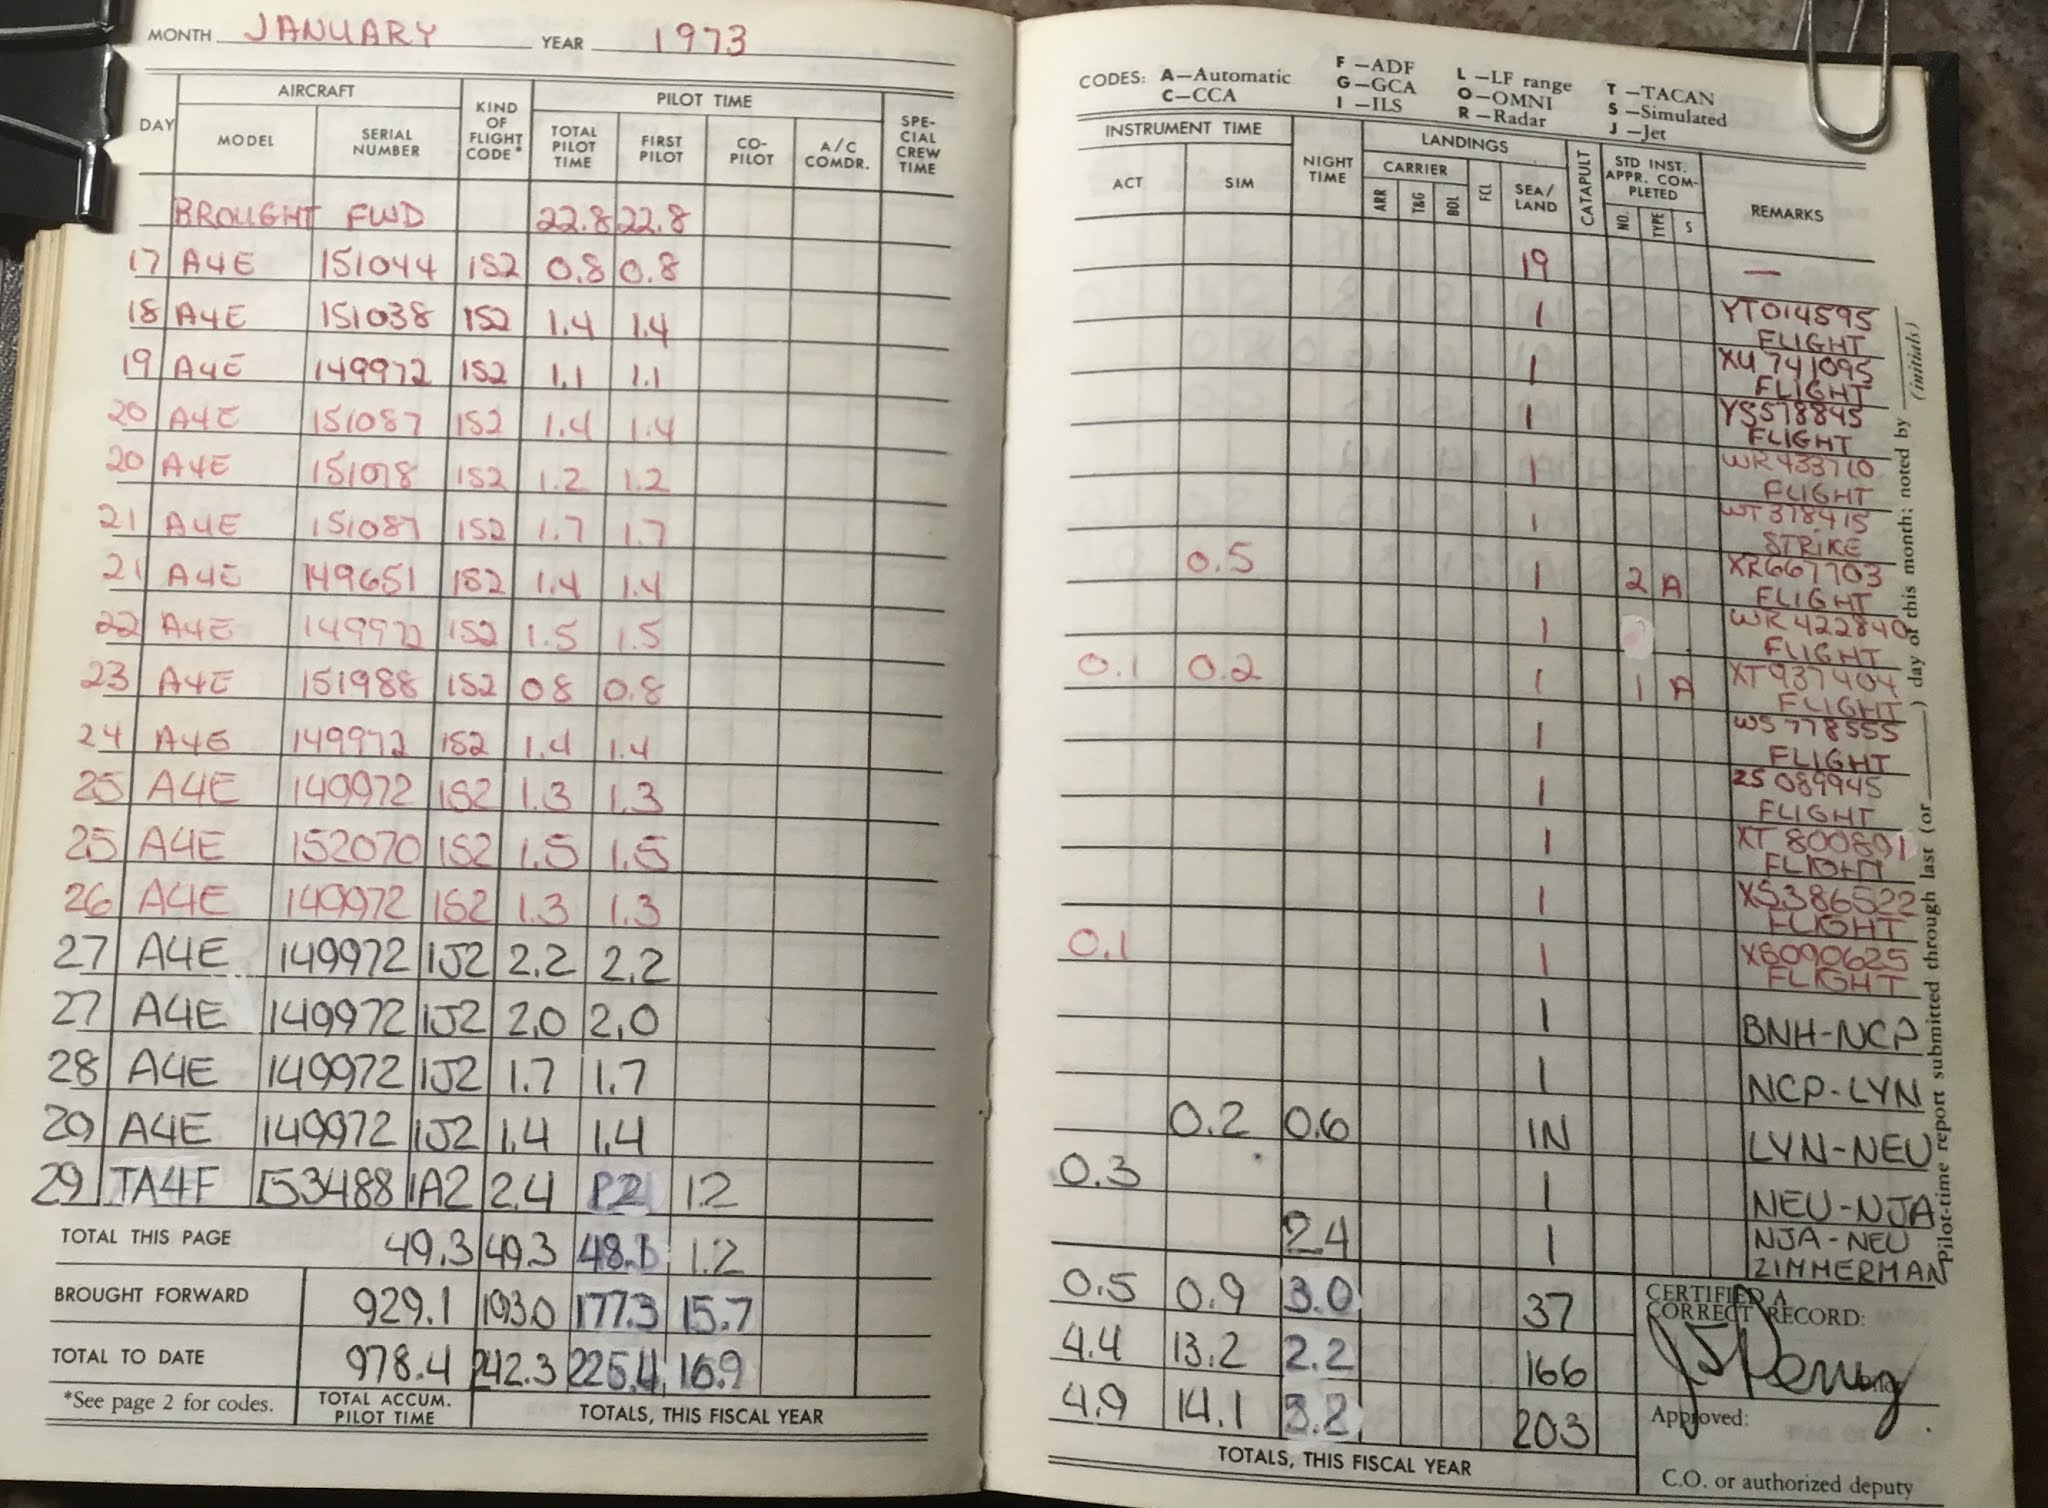 MONTH JANUARY YEAR 1973
DAY AIRCRAFT KIND OF FLIGHT CODE* PILOT TIME SPE-CIAL CREW TIME
MODEL SERIAL NUMBER TOTAL PILOT TIME FIRST PILOT CO-PILOT A/C COMDR.
BROUGHT FWD 22.8 22.8
17 A4E 151044 1S2 0.8 0.8
18 A4E 151038 1S2 1.4 1.4
19 A4E 149972 1S2 1.1 1.1
20 A4E 151087 1S2 1.4 1.4
20 A4E 151078 1S2 1.2 1.2
21 A4E 151087 1S2 1.7 1.7
21 A4E 149651 1S2 1.4 1.4
22 A4E 149972 1S2 1.5 1.5
23 A4E 151988 1S2 08 0.8
24 A4E 149972 1S2 1.4 1.4
25 A4E 149972 1S2 1.3 1.3
25 A4E 152070 1S2 1.5 1.5
26 A4E 149972 1S2 1.3 1.3
27 A4E 149972 1J2 2.2 2.2
27 A4E 149972 1J2 2.0 2.0
28 A4E 149972 1J2 1.7 1.7
29 A4E 149972 1J2 1.4 1.4
29 TA4F 153488 1A2 2.4 1.2
TOTAL THIS PAGE 49.3 49.3 48.1 1.2
BROUGHT FORWARD 929.1 193.0 177.3 15.7
TOTAL TO DATE 978.4 242.3 225.4 16.9
*See page 2 for codes. TOTAL ACCUM. PILOT TIME TOTALS, THIS FISCAL YEAR
CODES: A—Automatic F—ADF L—LF range T—TACAN
C—CCA G—GCA O—OMNI S—Simulated
I—ILS R—Radar J—Jet
INSTRUMENT TIME NIGHT TIME LANDINGS CATAPULT STD INST. APPR. COM-PLETED REMARKS
ACT SIM CARRIER FCL SEA/LAND NO. TYPE S
ARR T&G BOL
19 —
1 YT014595 FLIGHT
1 XU 741095 FLIGHT
1 YS578845 FLIGHT
1 WR433710 FLIGHT
1 WT378415 STRIKE
0.5 1 2 A XR667703 FLIGHT
1 WR422840 FLIGHT
0.1 0.2 1 1 A XT937404 FLIGHT
1 WS778555 FLIGHT
1 ZS089945 FLIGHT
1 XT800801 FLIGHT
1 XS386522 FLIGHT
0.1 1 XS090625 FLIGHT
1 BNH-NCP
1 NCP-LYN
0.2 0.6 1N LYN-NEU
0.3 1 NEU-NJA
2.4 1 NJA-NEU ZIMMERMAN
0.5 0.9 3.0 37 CERTIFIED A CORRECT RECORD:
4.4 13.2 2.2 166
4.9 14.1 203 Approved:
TOTALS, THIS FISCAL YEAR C.O. or authorized deputy
Pilot-time report submitted through last (or ) day of this month; noted by (initials)